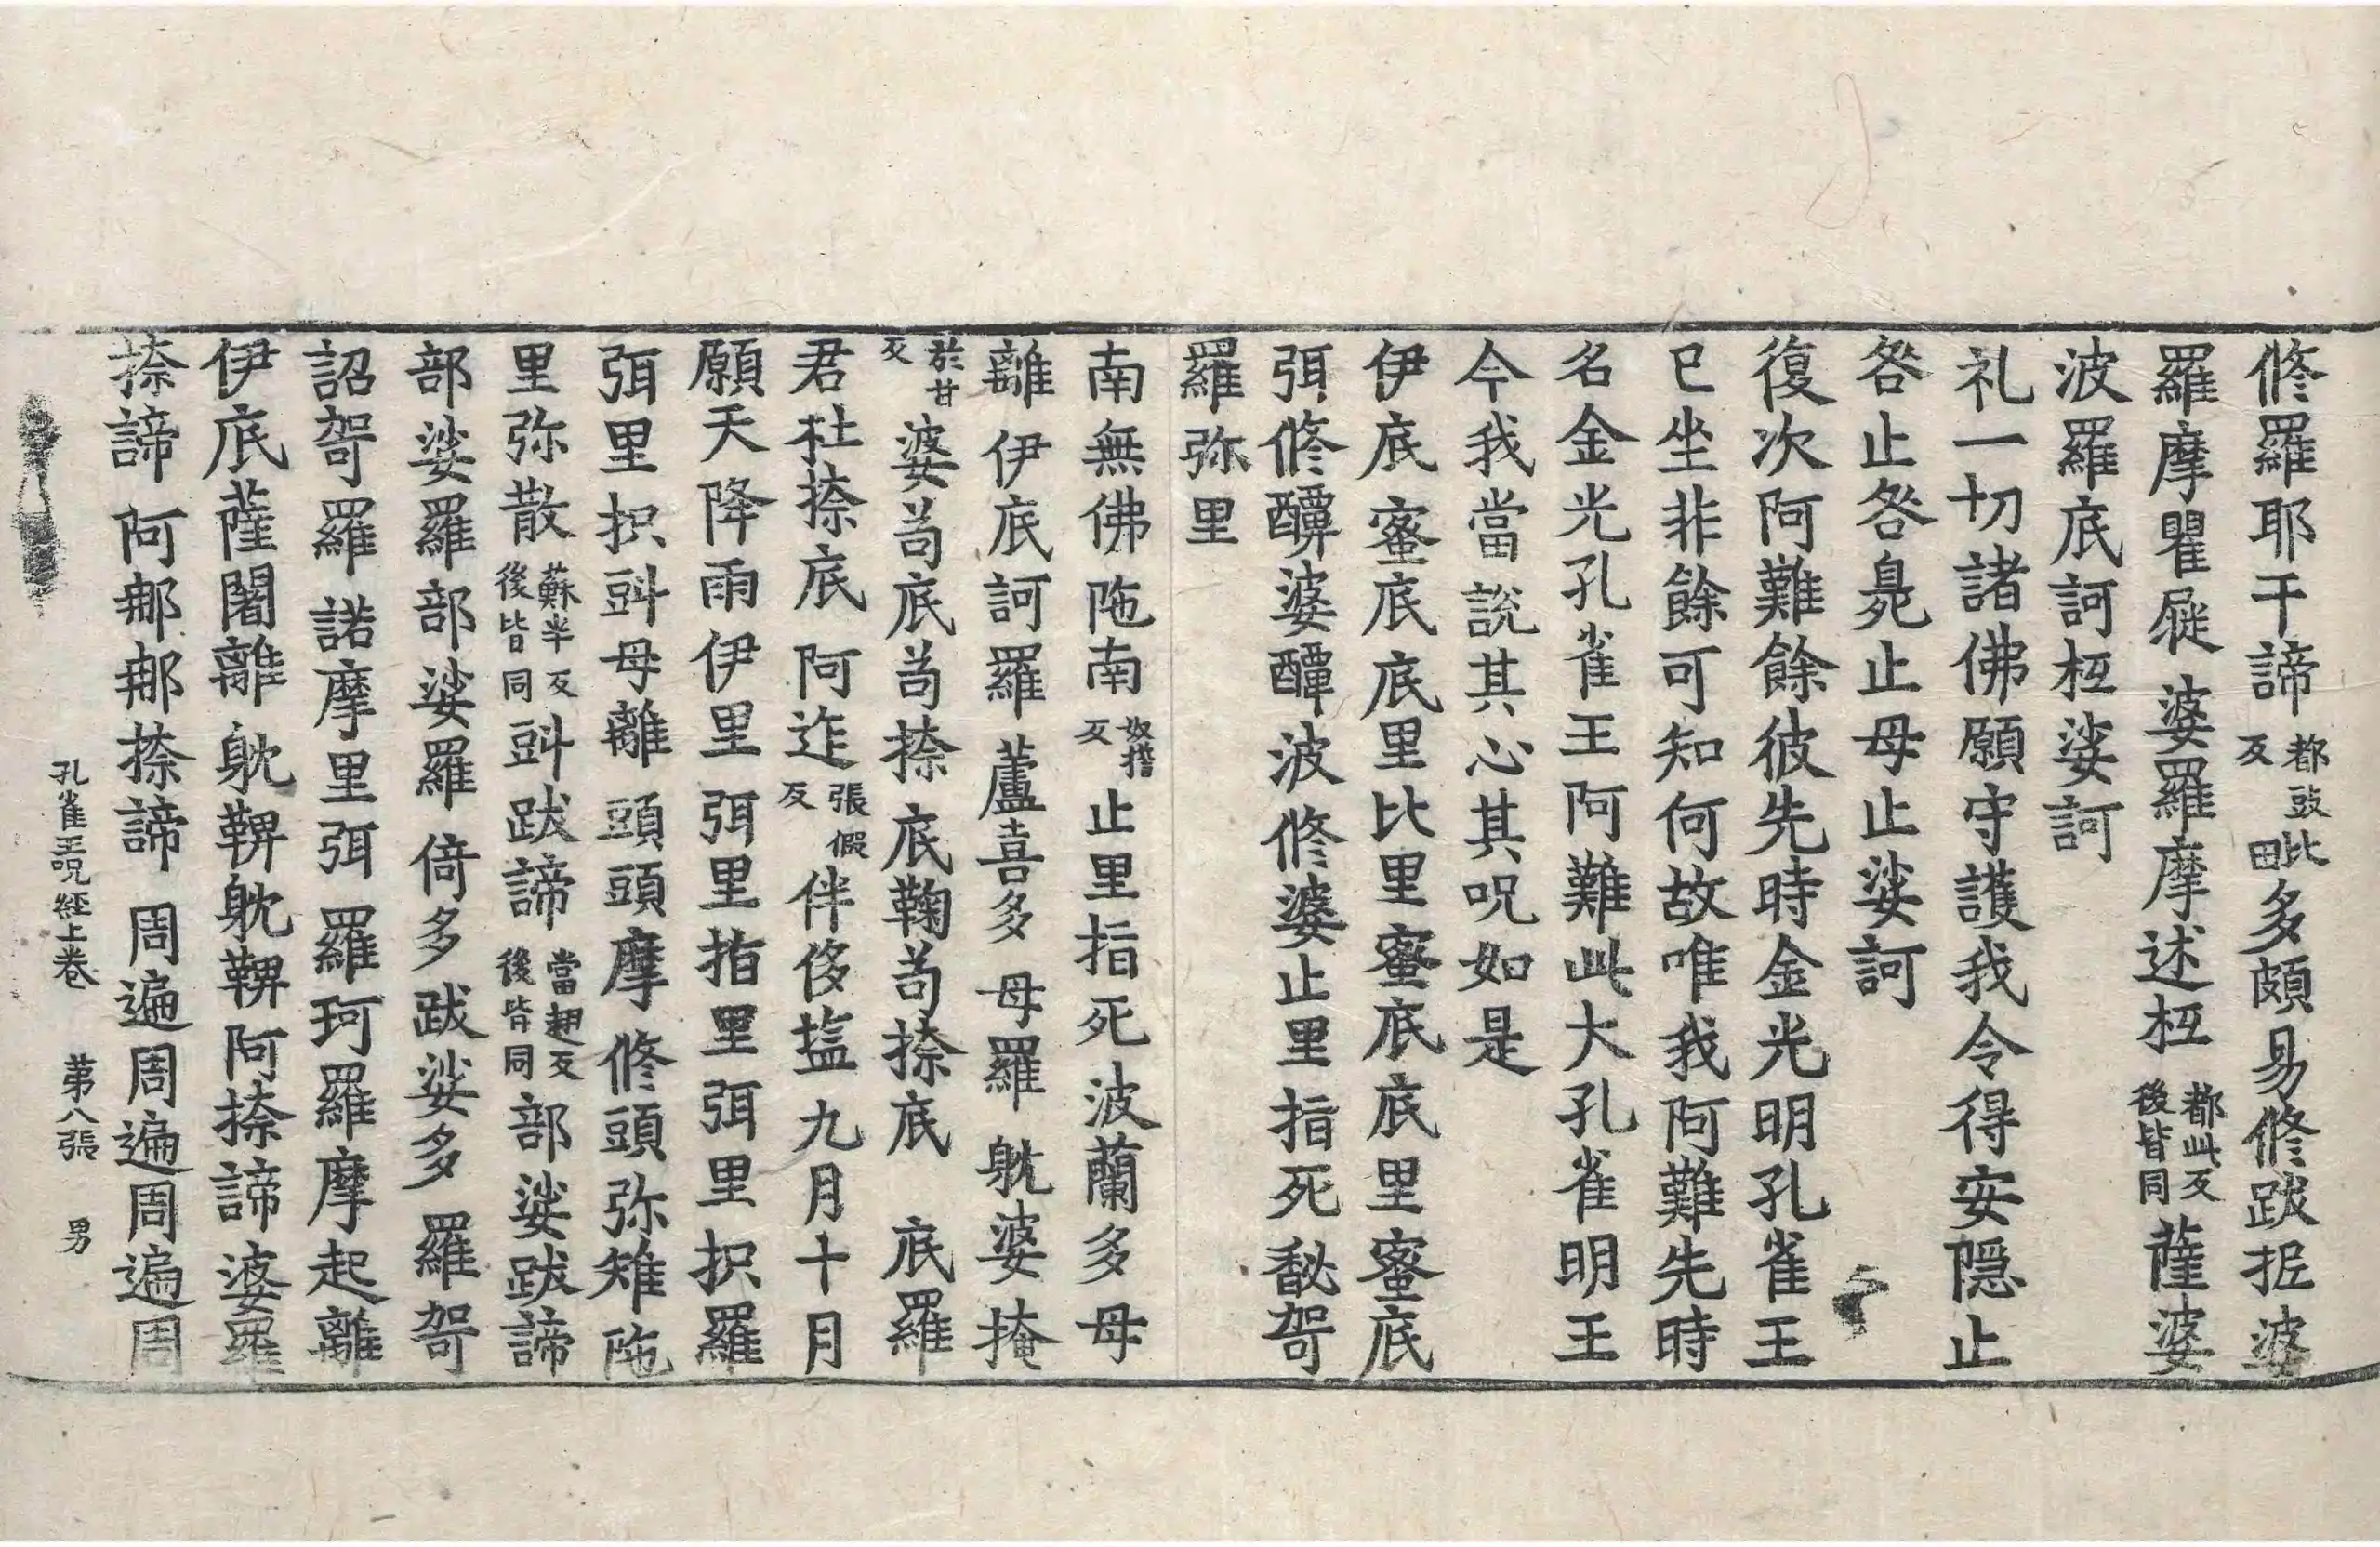 修羅耶干諦都豉反比田多頗易修跋拞婆
羅摩瞿屣婆羅摩述枑都此反後皆同薩婆
波羅底訶枑娑訶
礼一切諸佛願守護我令得安隱止
咎止咎臰止母止娑訶
復次阿難餘彼先時金光明孔雀王
已坐非餘可知何故唯我阿難先時
名金光孔雀王阿難此大孔雀明王
今我當說其心其呪如是
伊底蜜底底里比里蜜底底里蜜底
弭修䤄婆䤄波修婆止里指死馝哿
羅弥里
南無佛陁南奴擔反止里指死波蘭多母
離伊底訶羅蘆喜多母羅躭婆掩
於甘反婆茍底茍捺底鞠茍捺底底羅
君杜捺底阿迮張假反伴侈㨒九月十月
願天降雨伊里弭里指里弭里抧羅
弭里抧㪷母離頭頭摩修頭弥雉陁
里弥散蘇半反後皆同㪷跋諦當翅反後皆同部娑跋諦
部娑羅部娑羅倚多跋娑多羅哿
詔哿羅諾摩里弭羅珂羅摩起離
伊底薩闍離躭鞞躭鞞阿捺諦婆羅
捺諦阿那那捺諦周遍周遍周遍周
孔雀王呪經上卷 第八張 男